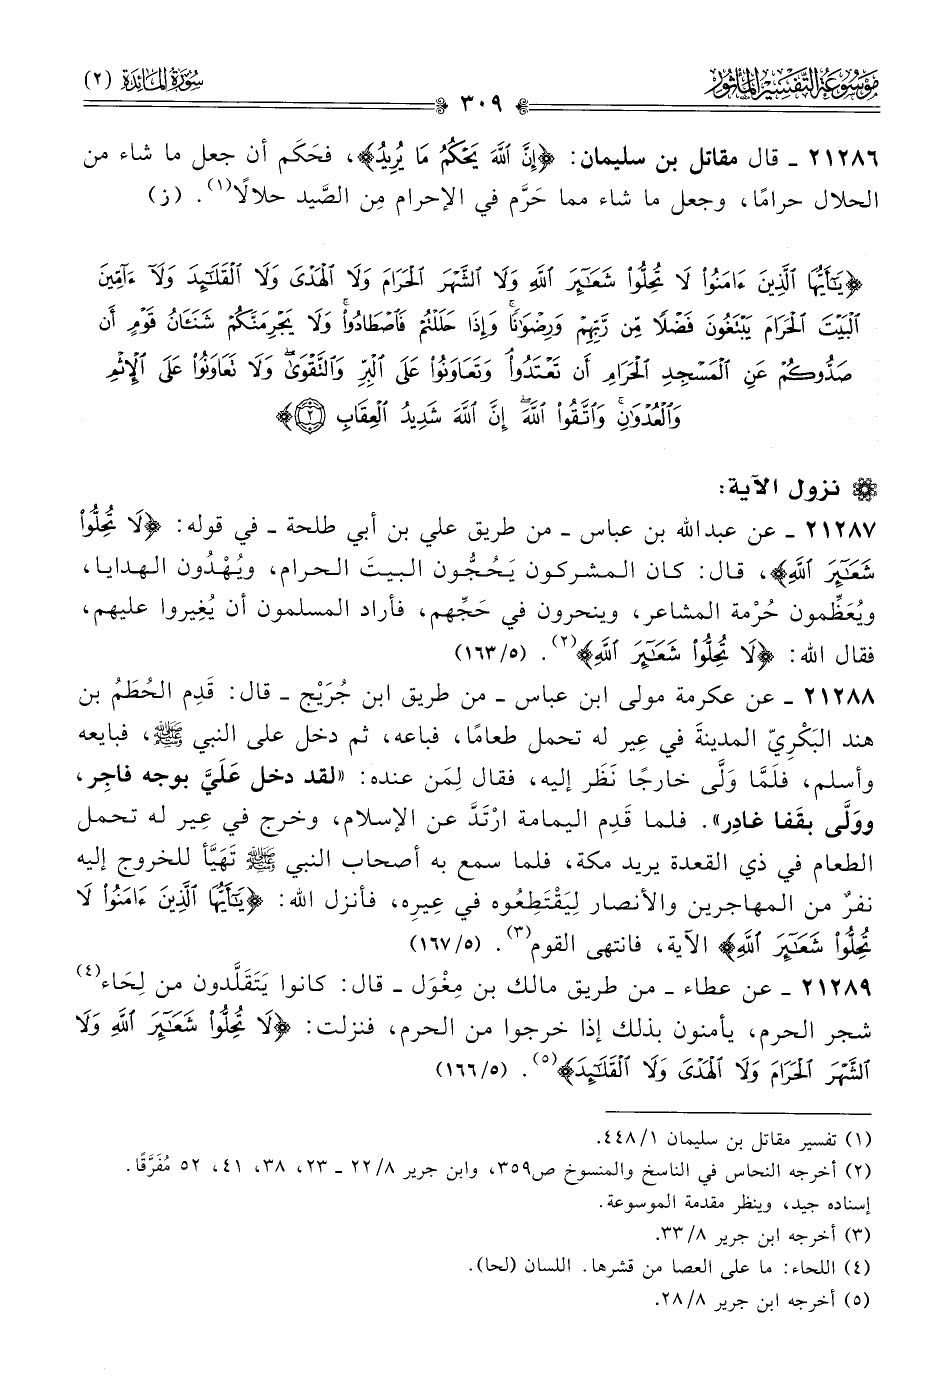 مَوْسُوعَةُ التَّفْسِيرِ المَأْثُورِ
سُورَةُ المَائِدَةِ (٢)
٣٠٩
٢١٢٨٦ ـ قال مقاتل بن سليمان: ﴿إِنَّ ٱللَّهَ يَحۡكُمُ مَا يُرِيدُ﴾، فحَكَم أن جعل ما شاء من
الحلال حرامًا، وجعل ما شاء مما حَرَّم في الإحرام مِن الصَّيد حلالًا(١). (ز)
﴿يَٰٓأَيُّهَا ٱلَّذِينَ ءَامَنُواْ لَا تُحِلُّواْ شَعَٰٓئِرَ ٱللَّهِ وَلَا ٱلشَّهۡرَ ٱلۡحَرَامَ وَلَا ٱلۡهَدۡىَ وَلَا ٱلۡقَلَٰٓئِدَ وَلَآ ءَآمِّينَ
ٱلۡبَيۡتَ ٱلۡحَرَامَ يَبۡتَغُونَ فَضۡلٗا مِّن رَّبِّهِمۡ وَرِضۡوَٰنٗاۚ وَإِذَا حَلَلۡتُمۡ فَٱصۡطَادُواْۚ وَلَا يَجۡرِمَنَّكُمۡ شَنَـَٔانُ قَوۡمٍ أَن
صَدُّوكُمۡ عَنِ ٱلۡمَسۡجِدِ ٱلۡحَرَامِ أَن تَعۡتَدُواْۘ وَتَعَاوَنُواْ عَلَى ٱلۡبِرِّ وَٱلتَّقۡوَىٰۖ وَلَا تَعَاوَنُواْ عَلَى ٱلۡإِثۡمِ
وَٱلۡعُدۡوَٰنِۚ وَٱتَّقُواْ ٱللَّهَۖ إِنَّ ٱللَّهَ شَدِيدُ ٱلۡعِقَابِ ٢﴾
نزول الآية:
٢١٢٨٧ ـ عن عبدالله بن عباس ـ من طريق علي بن أبي طلحة ـ في قوله: ﴿لَا تُحِلُّواْ
شَعَٰٓئِرَ ٱللَّهِ﴾، قال: كان المشركون يَحُجُّون البيتَ الحرام، ويُهْدُون الهدايا،
ويُعَظِّمون حُرْمة المشاعر، وينحرون في حَجِّهم، فأراد المسلمون أن يُغِيروا عليهم،
فقال الله: ﴿لَا تُحِلُّواْ شَعَٰٓئِرَ ٱللَّهِ﴾(٢). (١٦٣/٥)
٢١٢٨٨ ـ عن عكرمة مولى ابن عباس ـ من طريق ابن جُرَيْج ـ قال: قَدِم الحُطَمُ بن
هند البَكْرِيّ المدينةَ في عِير له تحمل طعامًا، فباعه، ثم دخل على النبي ﷺ، فبايعه
وأسلم، فلَمَّا وَلَّى خارجًا نَظَر إليه، فقال لِمَن عنده: «لقد دخل عَلَيَّ بوجه فاجِر،
ووَلَّى بقَفا غادِر». فلما قدِم اليمامة ارْتَدَّ عن الإسلام، وخرج في عِير له تحمل
الطعام في ذي القعدة يريد مكة، فلما سمع به أصحاب النبي ﷺ تَهَيَّأ للخروج إليه
نفرٌ من المهاجرين والأنصار لِيَقْتَطِعُوه في عِيرِه، فأنزل الله: ﴿يَٰٓأَيُّهَا ٱلَّذِينَ ءَامَنُواْ لَا
تُحِلُّواْ شَعَٰٓئِرَ ٱللَّهِ﴾ الآية، فانتهى القوم(٣). (١٦٧/٥)
٢١٢٨٩ ـ عن عطاء ـ من طريق مالك بن مِغْوَل ـ قال: كانوا يَتَقَلَّدون من لِحَاء(٤)
شجر الحرم، يأمنون بذلك إذا خرجوا من الحرم، فنزلت: ﴿لَا تُحِلُّواْ شَعَٰٓئِرَ ٱللَّهِ وَلَا
ٱلشَّهۡرَ ٱلۡحَرَامَ وَلَا ٱلۡهَدۡىَ وَلَا ٱلۡقَلَٰٓئِدَ﴾(٥). (١٦٦/٥)
(١) تفسير مقاتل بن سليمان ٤٤٨/١.
(٢) أخرجه النحاس في الناسخ والمنسوخ ص٣٥٩، وابن جرير ٢٢/٨ ـ ٢٣، ٣٨، ٤١، ٥٢ مُفَرَّقًا.
إسناده جيد، وينظر مقدمة الموسوعة.
(٣) أخرجه ابن جرير ٣٣/٨.
(٤) اللحاء: ما على العصا من قشرها. اللسان (لحا).
(٥) أخرجه ابن جرير ٢٨/٨.